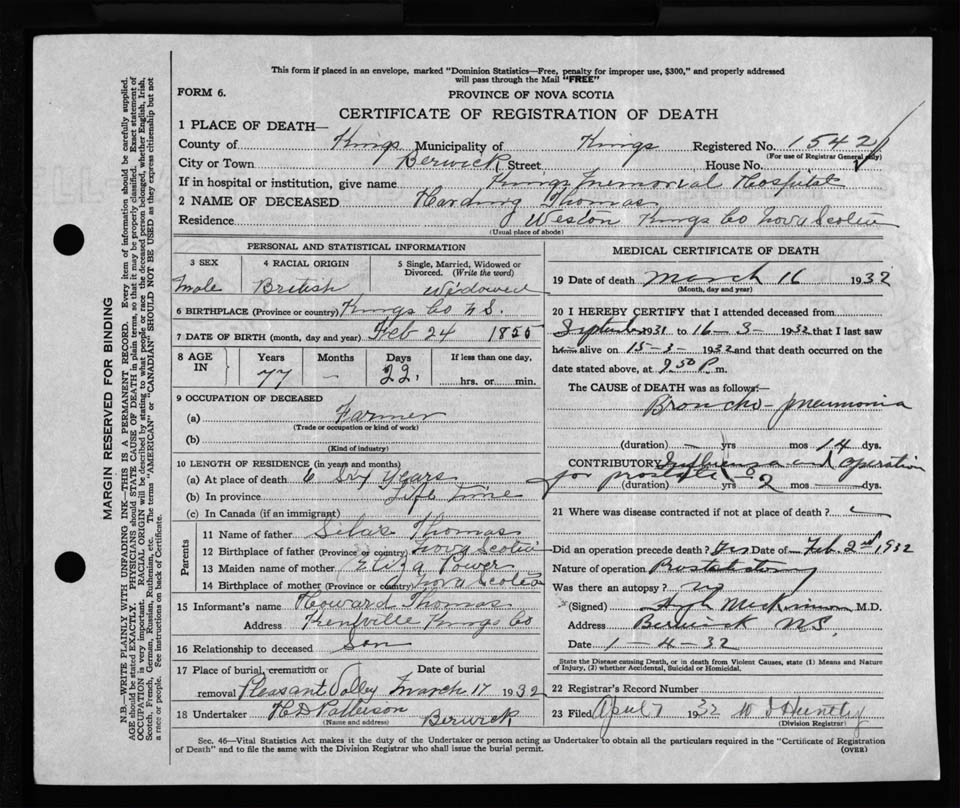 This form if placed in an envelope, marked "Dominion Statistics—Free, penalty for improper use, $300," and properly addressed
will pass through the Mail "FREE"
FORM 6.
PROVINCE OF NOVA SCOTIA
CERTIFICATE OF REGISTRATION OF DEATH
1 PLACE OF DEATH—
County of Kings Municipality of Kings Registered No. 1542
(For use of Registrar General only)
City or Town Berwick Street House No.
If in hospital or institution, give name Kings Memorial Hospital
2 NAME OF DECEASED Harding Thomas
Residence Weston Kings Co Nova Scotia
(Usual place of abode)
PERSONAL AND STATISTICAL INFORMATION
3 SEX 4 RACIAL ORIGIN 5 Single, Married, Widowed or
Divorced. (Write the word)
Male British Widowed
6 BIRTHPLACE (Province or country) Kings Co N.S.
7 DATE OF BIRTH (month, day and year) Feb 24 1855
8 AGE IN Years Months Days If less than one day,
77 — 22. hrs. or min.
9 OCCUPATION OF DECEASED
(a) Farmer
(Trade or occupation or kind of work)
(b)
(Kind of industry)
10 LENGTH OF RESIDENCE (in years and months)
(a) At place of death 6 Six Years
(b) In province Life time
(c) In Canada (if an immigrant)
Parents
11 Name of father Silas Thomas
12 Birthplace of father (Province or country) Nova Scotia
13 Maiden name of mother Eliza Power
14 Birthplace of mother (Province or country) Nova Scotia
15 Informant's name Howard Thomas
Address Kentville Kings Co
16 Relationship to deceased Son
17 Place of burial, cremation or Date of burial
removal Pleasant Valley March 17 1932
18 Undertaker H D Patterson Berwick
(Name and address)
MEDICAL CERTIFICATE OF DEATH
19 Date of death March 16 1932
(Month, day and year)
20 I HEREBY CERTIFY that I attended deceased from
September 1931 to 16-3-1932 that I last saw
him alive on 15-3-1932 and that death occurred on the
date stated above, at 9.50 P. m.
The CAUSE of DEATH was as follows:—
Broncho pneumonia
(duration) — yrs mos 14 dys.
CONTRIBUTORY Influenza and operation
for prostate
(duration) yrs 2 mos — dys.
21 Where was disease contracted if not at place of death?
Did an operation precede death? Yes Date of Feb. 2nd 1932
Nature of operation
Was there an autopsy? no
(Signed) M.D.
Address Berwick N.S.
Date 1-4-32
State the Disease causing Death, or in death from Violent Causes, state (1) Means and Nature
of Injury, (2) whether Accidental, Suicidal or Homicidal.
22 Registrar's Record Number
23 Filed April 7 1932 Huntley
(Division Registrar)
Sec. 46—Vital Statistics Act makes it the duty of the Undertaker or person acting as Undertaker to obtain all the particulars required in the "Certificate of Registration
of Death" and to file the same with the Division Registrar who shall issue the burial permit.
(OVER)
MARGIN RESERVED FOR BINDING
N.B.—WRITE PLAINLY WITH UNFADING INK—THIS IS A PERMANENT RECORD. Every item of information should be carefully supplied.
AGE should be stated EXACTLY. PHYSICIANS should STATE CAUSE OF DEATH in plain terms, so that it may be properly classified. Exact statement of
OCCUPATION is very important. RACIAL ORIGIN will be described by stating to what people or race the deceased person belonged, whether English, Irish,
Scotch, French, German, Russian, Ruthenian, etc. The terms "AMERICAN" or "CANADIAN" SHOULD NOT BE USED as they express citizenship but not
a race or people. See instructions on back of Certificate.